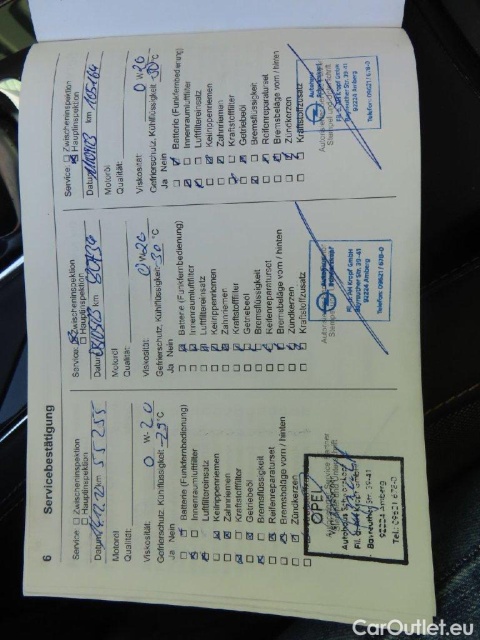 6 Servicebestätigung
Service: ☐ Zwischeninspektion
☐ Hauptinspektion
Datum km 55255
Motoröl
Qualität:
Viskosität: 0 W-20
Gefrierschutz, Kühlflüssigkeit -25°C
Ja Nein
Batterie (Funkfernbedienung)
Innenraumluftfilter
Luftfiltereinsatz
Keilrippenriemen
Zahnriemen
Kraftstofffilter
Getriebeöl
Bremsflüssigkeit
Reifenreparaturset
Bremsbeläge vorn / hinten
Zündkerzen
OPEL
Bayreuther Str. 39-41
92224 Amberg
Service: Zwischeninspektion
☐ Hauptinspektion
Datum km
Motoröl
Qualität:
Viskosität: 0 W-20
Gefrierschutz, Kühlflüssigkeit -30°C
Ja Nein
Batterie (Funkfernbedienung)
Innenraumluftfilter
Luftfiltereinsatz
Keilrippenriemen
Zahnriemen
Kraftstofffilter
Getriebeöl
Bremsflüssigkeit
Reifenreparaturset
Bremsbeläge vorn / hinten
Zündkerzen
Kraftstoffzusatz
Fil. der Kropf GmbH
Bayreuther Str. 39-41
92224 Amberg
Telefon: 09621/678-0
Service: ☐ Zwischeninspektion
Hauptinspektion
Datum km 105164
Motoröl
Qualität:
Viskosität: 0 W-20
Gefrierschutz, Kühlflüssigkeit -30°C
Ja Nein
Batterie (Funkfernbedienung)
Innenraumluftfilter
Luftfiltereinsatz
Keilrippenriemen
Zahnriemen
Kraftstofffilter
Getriebeöl
Bremsflüssigkeit
Reifenreparaturset
Bremsbeläge vorn / hinten
Zündkerzen
Kraftstoffzusatz
Fil. der Kropf GmbH
Bayreuther Str. 39-41
92224 Amberg
Telefon: 09621/678-0
CarOutlet.eu